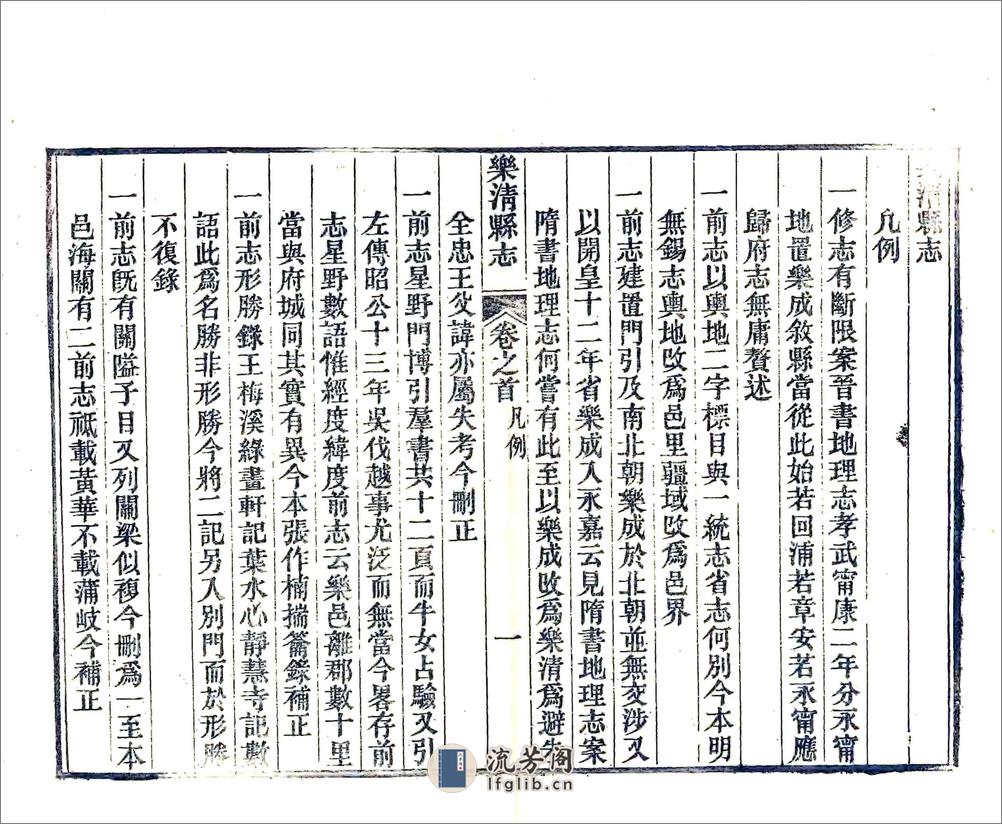 清縣志
凡例
一修志有斷限案晉書地理志孝武甯康二年分永甯
地置樂成敘縣當從此始若回浦若章安若永甯應
歸府志無庸贅述
一前志以輿地二字標目與一統志省志何別今本明
無錫志輿地改爲邑里疆域改爲邑界
一前志建置門引及南北朝樂成於北朝並無交涉又
以開皇十二年省樂成入永嘉云見隋書地理志案
隋書地理志何嘗有此至以樂成改爲樂清爲避朱
樂清縣志
卷之首
凡例
一
全忠王父諱亦屬失考今刪正
一前志星野門博引羣書共十二頁而牛女占驗又引
左傳昭公十三年吳伐越事尤泛而無當今畧存前
志星野數語惟經度緯度前志云樂邑離郡數十里
當與府城同其實有異今本張作楠揣籥錄補正
一前志形勝錄王梅溪綠畫軒記葉水心靜慧寺記數
語此爲名勝非形勝今將二記另入別門而於形勝
不復錄
一前志旣有關隘子目又列關梁似複今刪爲一至本
邑海關有二前志祗載黃華不載蒲岐今補正
流芳閣
lfglib.cn